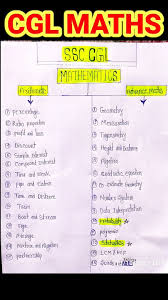 CGL MATHS
SSC CGL
MATHEMATICS
Arithmetic
Advance Maths
① Percentage
② Ratio proportion
③ profit and loss
④ Discount
⑤ Simple interest
⑥ Compound interest
⑦ Time and work
⑧ pipe and cistern
⑨ Time and Distance
⑩ Train
⑪ Boat and Stream
⑫ Age
⑬ Average
⑭ mixture and Alligation
⑮ partnership
① Geometry
② Mensuration
③ Trigonometry
④ Height and Distance
⑤ Algebra
⑥ Quadratic equation
⑦ Co-ordinate Geometry
⑧ Number System
⑨ Data Interpretation
⑩ probability
⑪ polygons
⑫ statistics
⑬ LCM & HCF